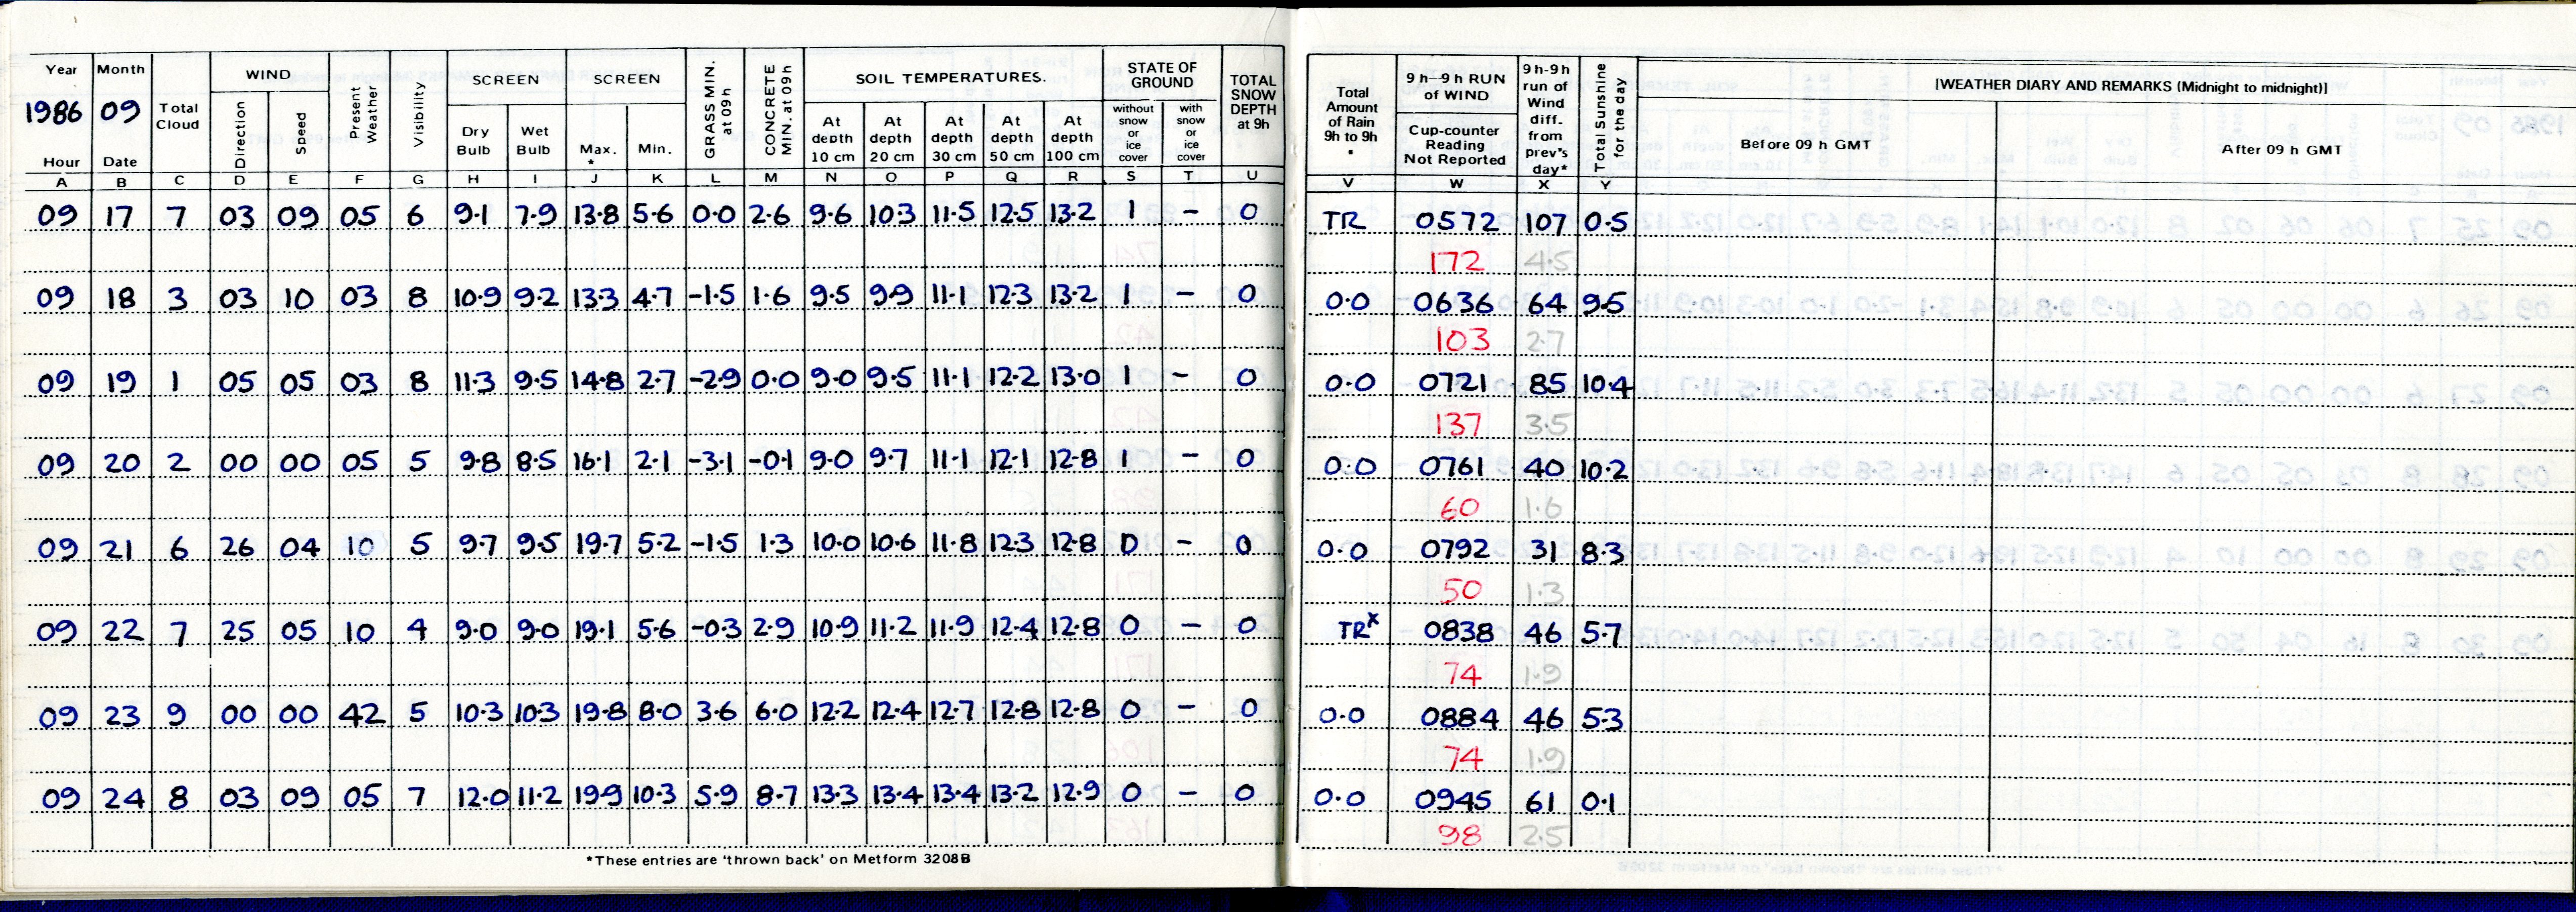 Year Month WIND SCREEN SCREEN SOIL TEMPERATURES. STATE OF GROUND
1986 09 Total Cloud Direction Speed Present Weather Visibility Dry Bulb Wet Bulb Max. * Min. GRASS MIN. at 09h CONCRETE MIN. at 09h At depth 10 cm At depth 20 cm At depth 30 cm At depth 50 cm At depth 100 cm without snow or ice cover with snow or ice cover TOTAL SNOW DEPTH at 9h
Hour Date
A B C D E F G H I J K L M N O P Q R S T U
09 17 7 03 09 05 6 9.1 7.9 13.8 5.6 0.0 2.6 9.6 10.3 11.5 12.5 13.2 1 – 0
09 18 3 03 10 03 8 10.9 9.2 13.3 4.7 -1.5 1.6 9.5 9.9 11.1 12.3 13.2 1 – 0
09 19 1 05 05 03 8 11.3 9.5 14.8 2.7 -2.9 0.0 9.0 9.5 11.1 12.2 13.0 1 – 0
09 20 2 00 00 05 5 9.8 8.5 16.1 2.1 -3.1 -0.1 9.0 9.7 11.1 12.1 12.8 1 – 0
09 21 6 26 04 10 5 9.7 9.5 19.7 5.2 -1.5 1.3 10.0 10.6 11.8 12.3 12.8 0 – 0
09 22 7 25 05 10 4 9.0 9.0 19.1 5.6 -0.3 2.9 10.9 11.2 11.9 12.4 12.8 0 – 0
09 23 9 00 00 42 5 10.3 10.3 19.8 8.0 3.6 6.0 12.2 12.4 12.7 12.8 12.8 0 – 0
09 24 8 03 09 05 7 12.0 11.2 19.9 10.3 5.9 8.7 13.3 13.4 13.4 13.2 12.9 0 – 0
*These entries are 'thrown back' on Metform 3208B
Total Amount of Rain 9h to 9h * 9h–9h RUN of WIND Cup-counter Reading Not Reported 9h-9h run of Wind diff. from prev's day* Total Sunshine for the day [WEATHER DIARY AND REMARKS (Midnight to midnight)]
Before 09 h GMT After 09 h GMT
V W X Y
TR 0572 107 0.5
172 4.5
0.0 0636 64 9.5
103 2.7
0.0 0721 85 10.4
137 3.5
0.0 0761 40 10.2
60 1.6
0.0 0792 31 8.3
50 1.3
TRx 0838 46 5.7
74 1.9
0.0 0884 46 5.3
74 1.9
0.0 0945 61 0.1
98 2.5